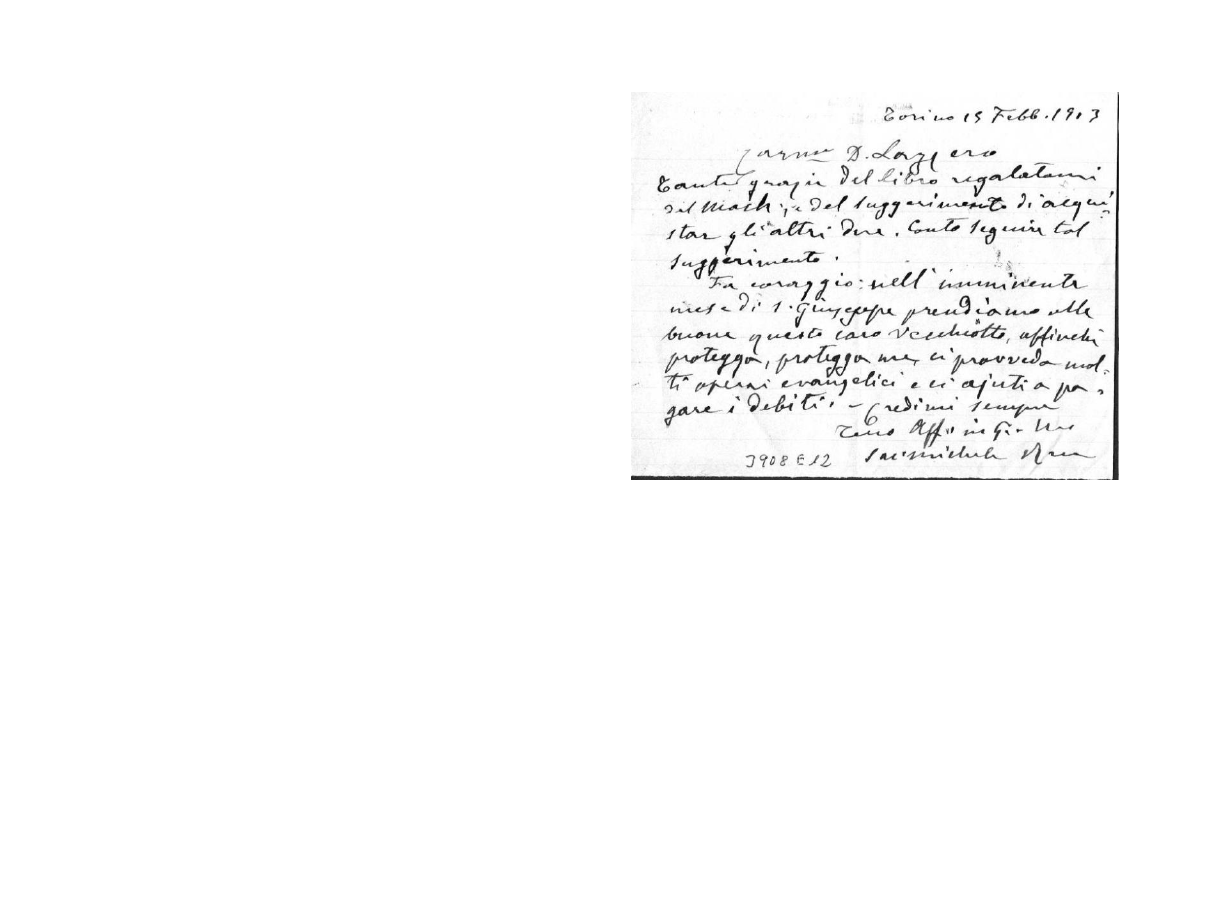 Torino 15 Febb. 1903
Carmo D. Lazzero
Tante grazie del libro regalatomi
del Mach e del suggerimento di acqui-
star gli altri due. Conto seguire tal
suggerimento.
Fa coraggio: nell'imminente
mese di S. Giuseppe prendiamo alle
buone questo caro Vecchiotto, affinchè
protegga, protegga me, ci provveda mol-
ti operai evangelici e ci ajuti a pa-
gare i debiti. - Credimi sempre
Tuo Aff in G. e M
Sac Michele Rua
3908 E 12